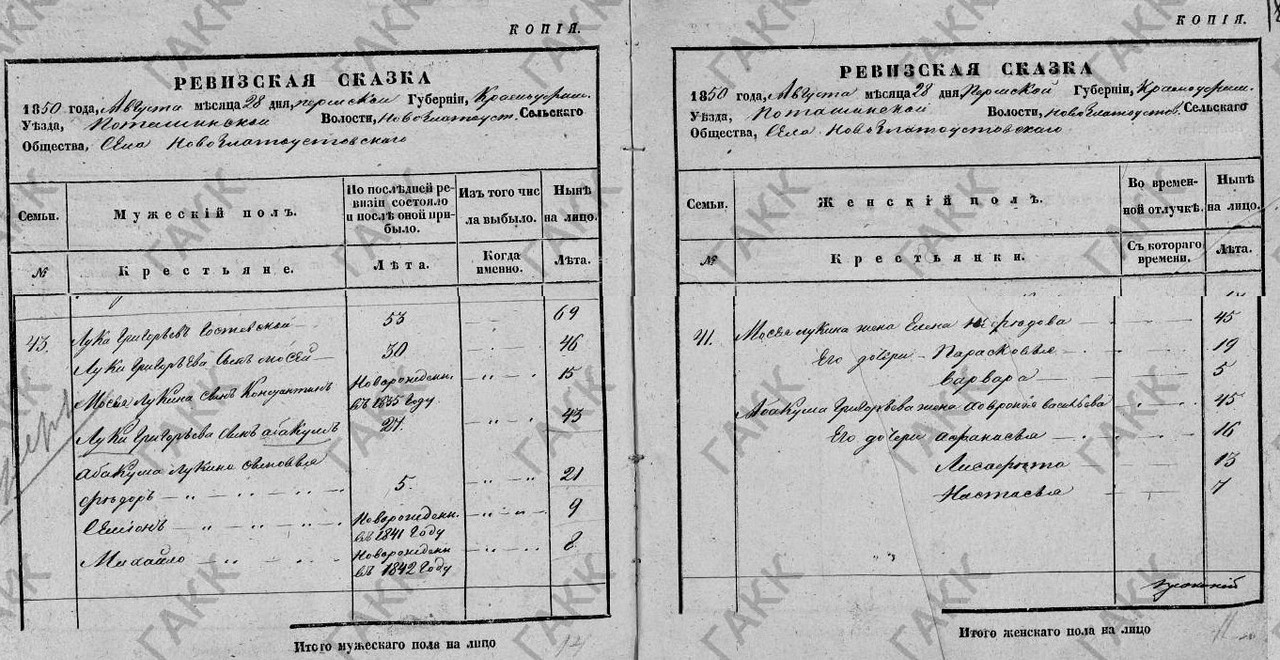 КОПІЯ.
РЕВИЗСКАЯ СКАЗКА
1850 года, Августа мѣсяца 28 дня, Пермской Губерніи, Красноуфим.
Уѣзда, Поташинской Волости, Новозлатоуст. Сельскаго
Общества, Села Новозлатоустовскаго
Семьи. Мужескій полъ. По послѣдней ревизіи состояло и послѣ оной прибыло. Изъ того числа выбыло. Нынѣ на лицо.
№ Крестьяне. Лѣта. Когда именно. Лѣта.
43. Лука Григорьевъ 53 69
Луки Григорьева сынъ Мосей 30 46
Мосея Лукина сынъ Константинъ Новорожденн. въ 1835 году 15
Луки Григорьева сынъ Абакумъ 27 43
Абакума Лукина сыновья
Фіодоръ 5. 21
Семіонъ Новорожденн. въ 1841 году 9
Михайло Новорожденн въ 1842 году 8
Итого мужескаго пола на лицо
КОПІЯ.
РЕВИЗСКАЯ СКАЗКА
1850 года, Августа мѣсяца 28 дня, Пермской Губерніи, Красноуфим.
Уѣзда, Поташинской Волости, Новозлатоустов. Сельскаго
Общества, Села Новозлатоустовскаго
Семьи. Женскій полъ. Во временной отлучкѣ. Нынѣ на лицо.
№ Крестьянки. Съ котораго времени. Лѣта.
Мосея Лукина жена Елена 45
Его дочери Парасковья 19
Варвара 5
Абакума Григорьева жена Васильева 45
Его дочери Афанасья 16
Лисафѣта 13
Настасья 7
Итого женскаго пола на лицо
ГАКК